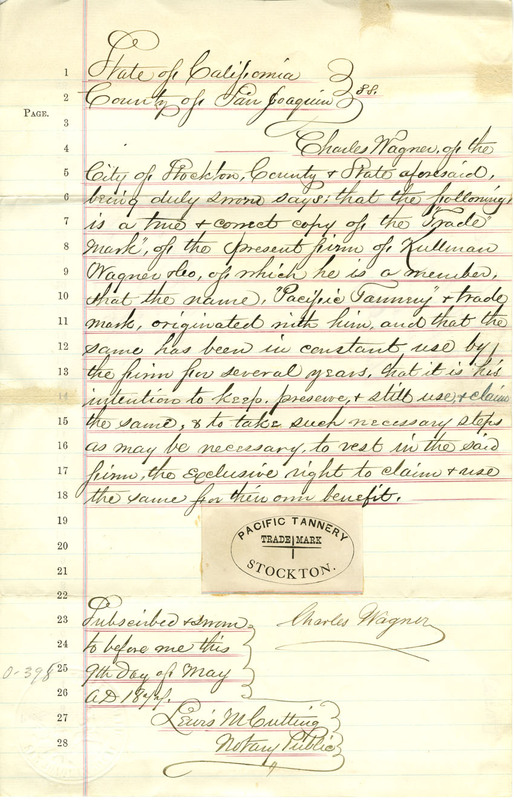 1 State of California
2 County of San Joaquin } ss.
PAGE.
3
4 Charles Wagner, of the
5 City of Stockton, County & State aforesaid,
6 being duly sworn says; that the following
7 is a true & correct copy of the "Trade
8 Mark", of the present firm of Kullman
9 Wagner & Co, of which he is a member,
10 that the name, "Pacific Tannery" & trade
11 mark, originated with him, and that the
12 same has been in constant use by
13 the firm for several years, that it is his
14 intention to keep, preserve, & still use & claim
15 the same, & to take such necessary steps
16 as may be necessary, to vest in the said
17 firm, the exclusive right to claim & use
18 the same for their own benefit.
19
20
21
22
PACIFIC TANNERY
TRADE MARK
STOCKTON.
23 Subscribed & sworn
Charles Wagner
24 to before me this
0-398
25 9th day of May
26 AD
27 Lewis M Cutting
28 Notary Public